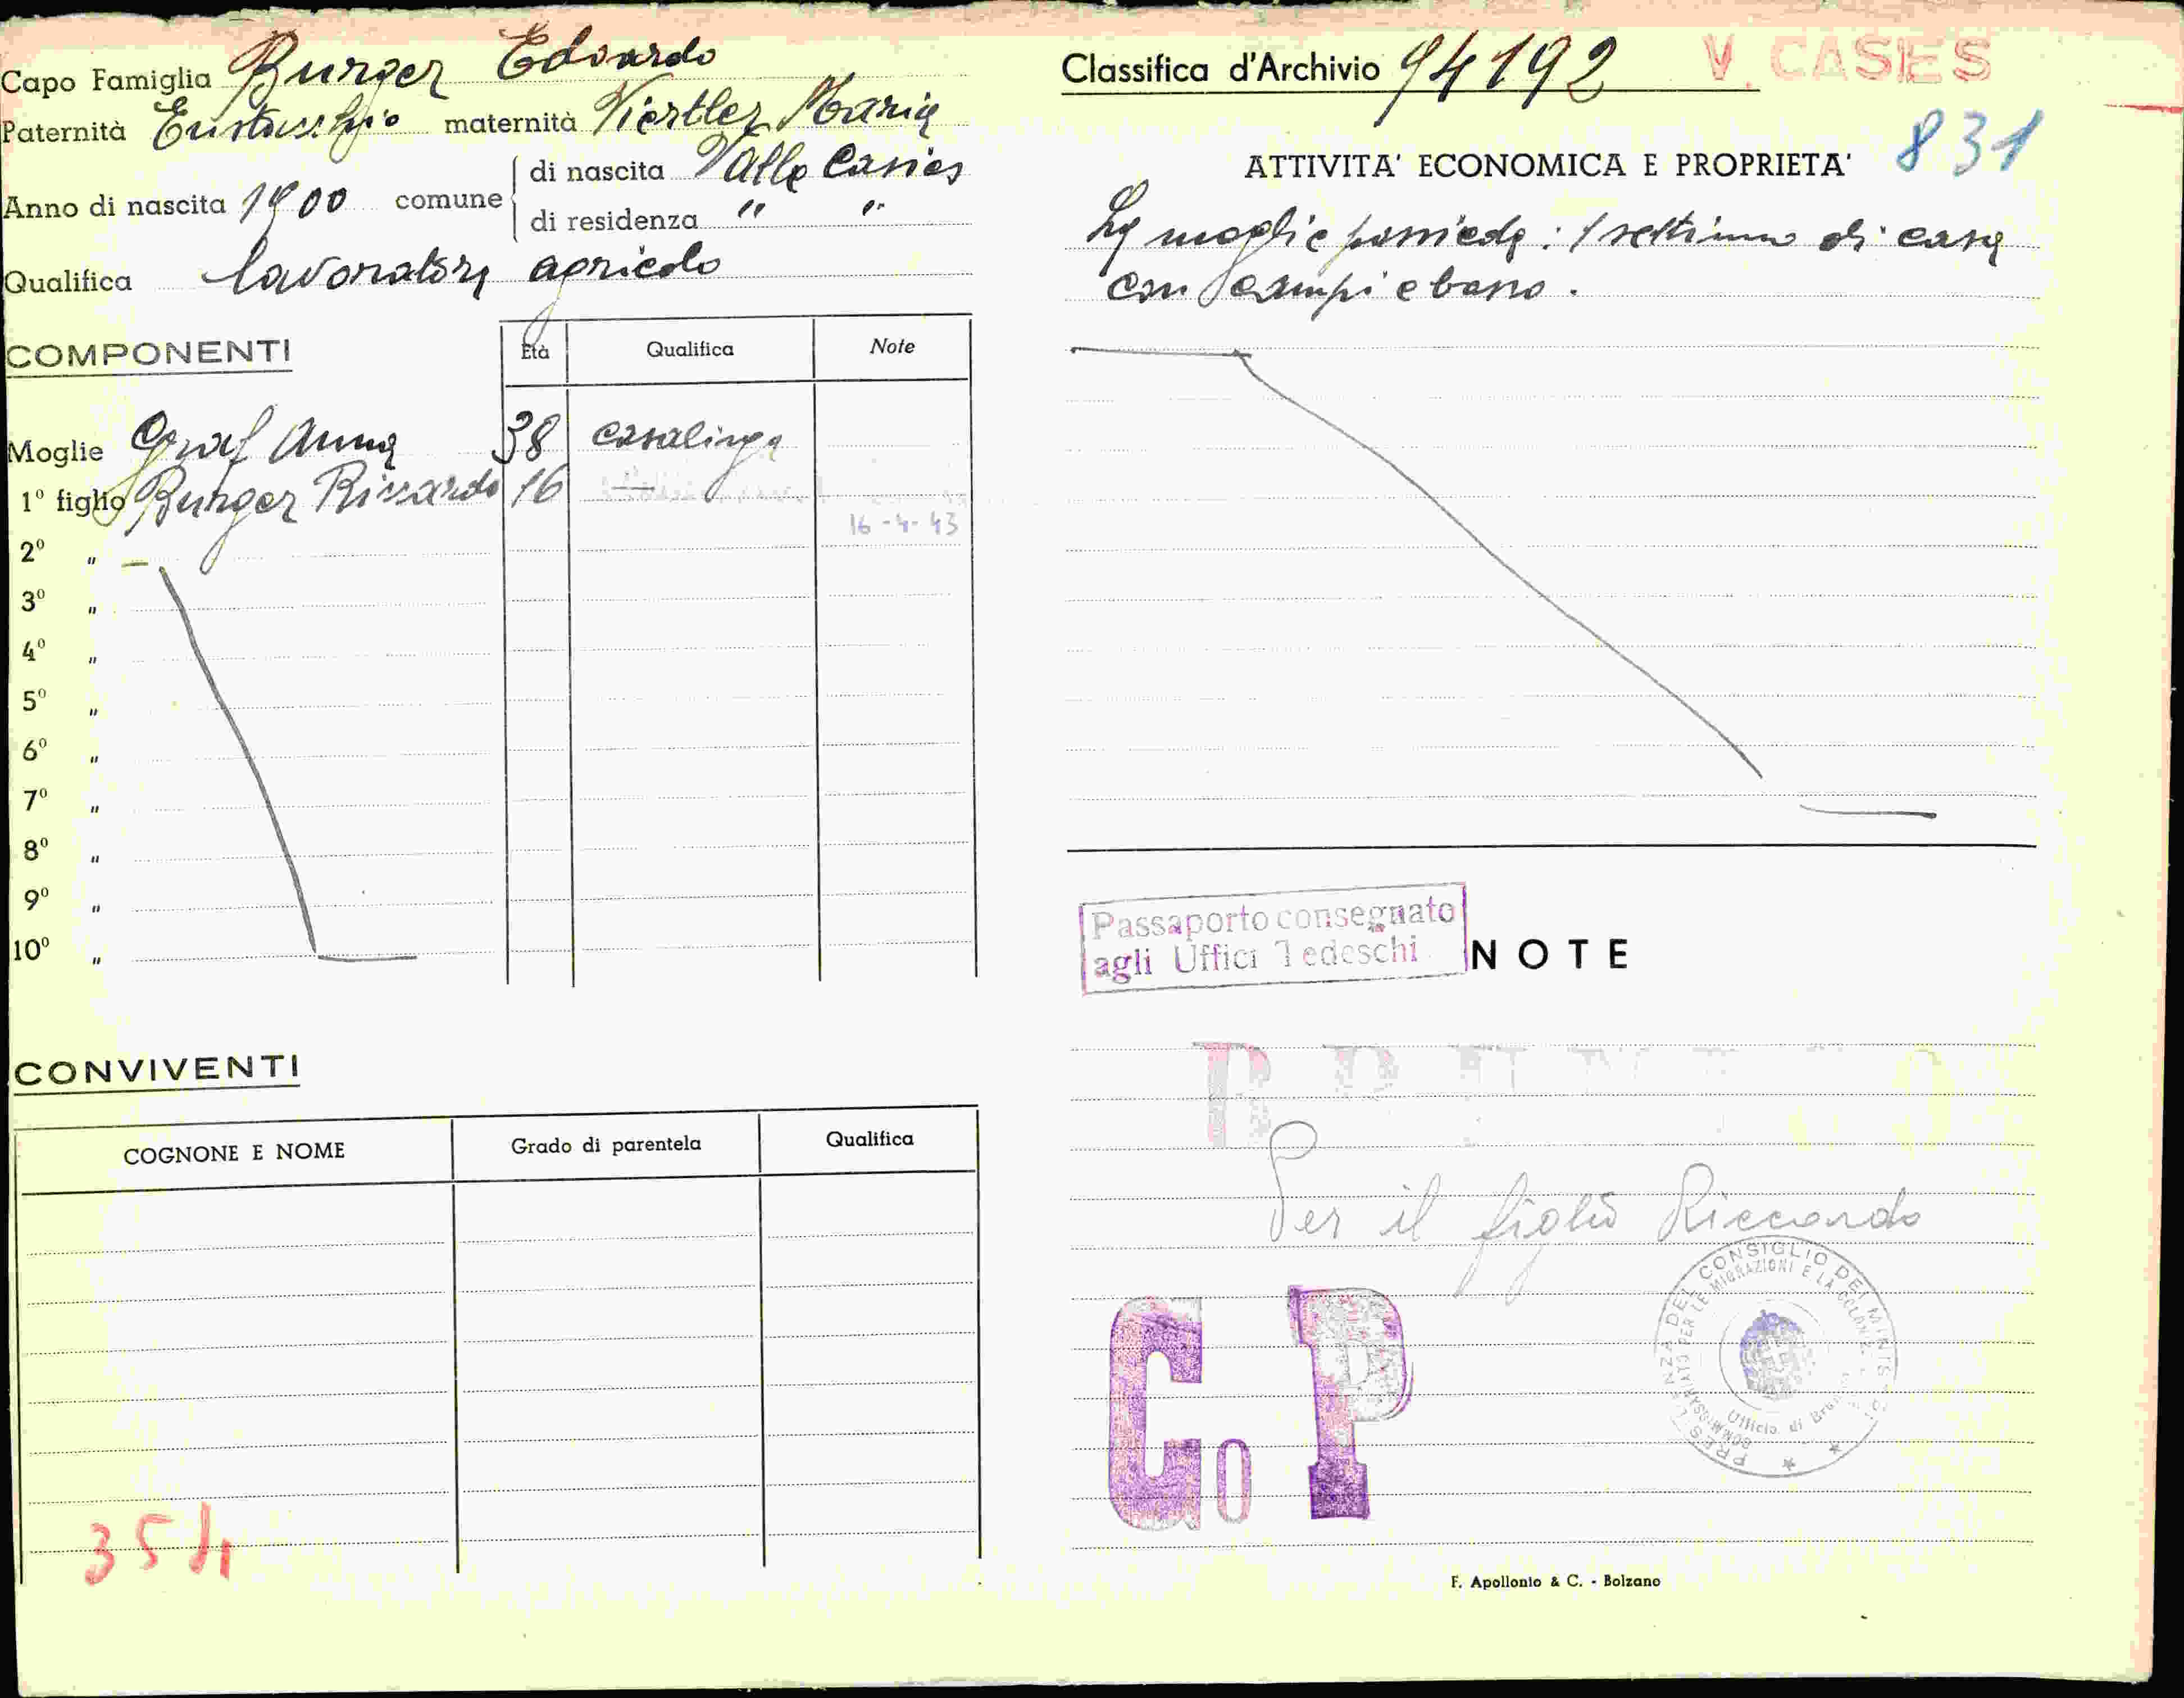 Capo Famiglia Burger Edoardo
Paternità Eustacchio maternità Viertler Maria
Anno di nascita 1900 comune
di nascita Valle Casies
di residenza " "
Qualifica lavoratore agricolo
COMPONENTI
Età Qualifica Note
Moglie Graf Anna 38 casalinga
1º figlio Burger Riccardo 16 —
16-4-43
2º " —
3º "
4º "
5º "
6º "
7º "
8º "
9º "
10º "
CONVIVENTI
COGNONE E NOME Grado di parentela Qualifica
354
Classifica d'Archivio 94192
V. CASIES
831
ATTIVITA' ECONOMICA E PROPRIETA'
La moglie possiede: 1 settimo di casa
con campi e bosco.
Passaporto consegnato
agli Uffici Tedeschi
NOTE
Per il figlio Riccardo
Go P
PRESIDENZA DEL CONSIGLIO DEI MINISTRI
COMMISSARIATO PER LE MIGRAZIONI E LA COLONIZ
Ufficio di
F. Apollonio & C. - Bolzano